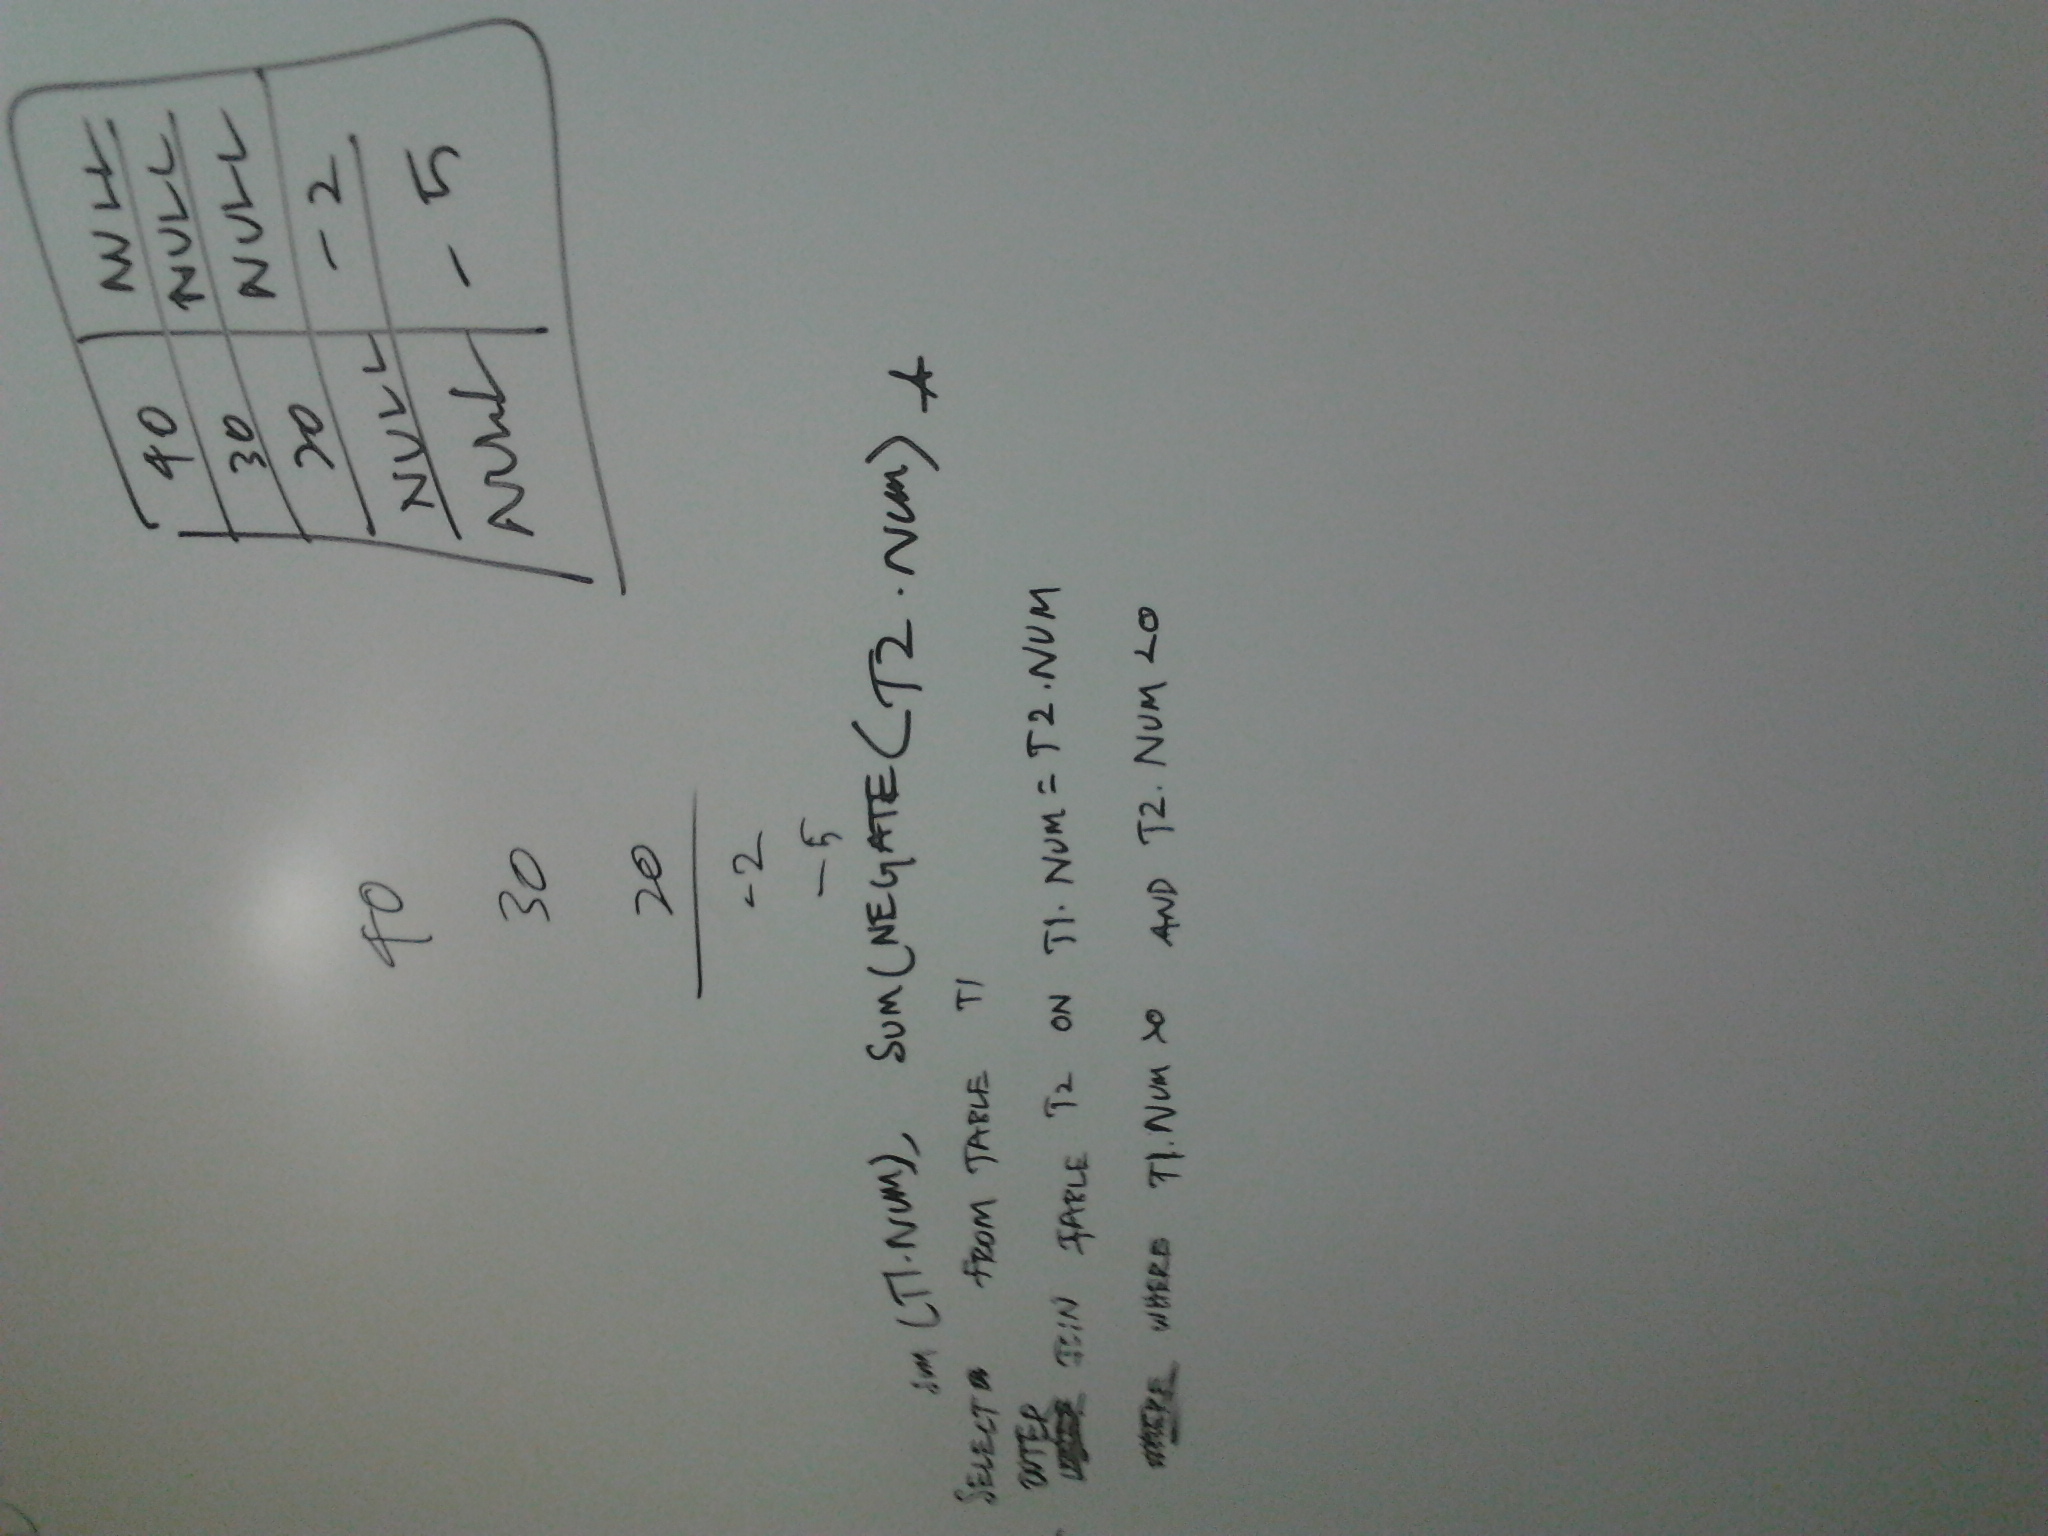 40 NULL
30 NULL
20 NULL
NULL -2
NULL -5
40
30
20
-2
-5
sum (T1.NUM), SUM(NEGATE(T2.NUM)
SELECT FROM TABLE T1
OUTER
JOIN TABLE T2 ON T1.NUM = T2.NUM
WHERE T1.NUM >0 AND T2.NUM <0